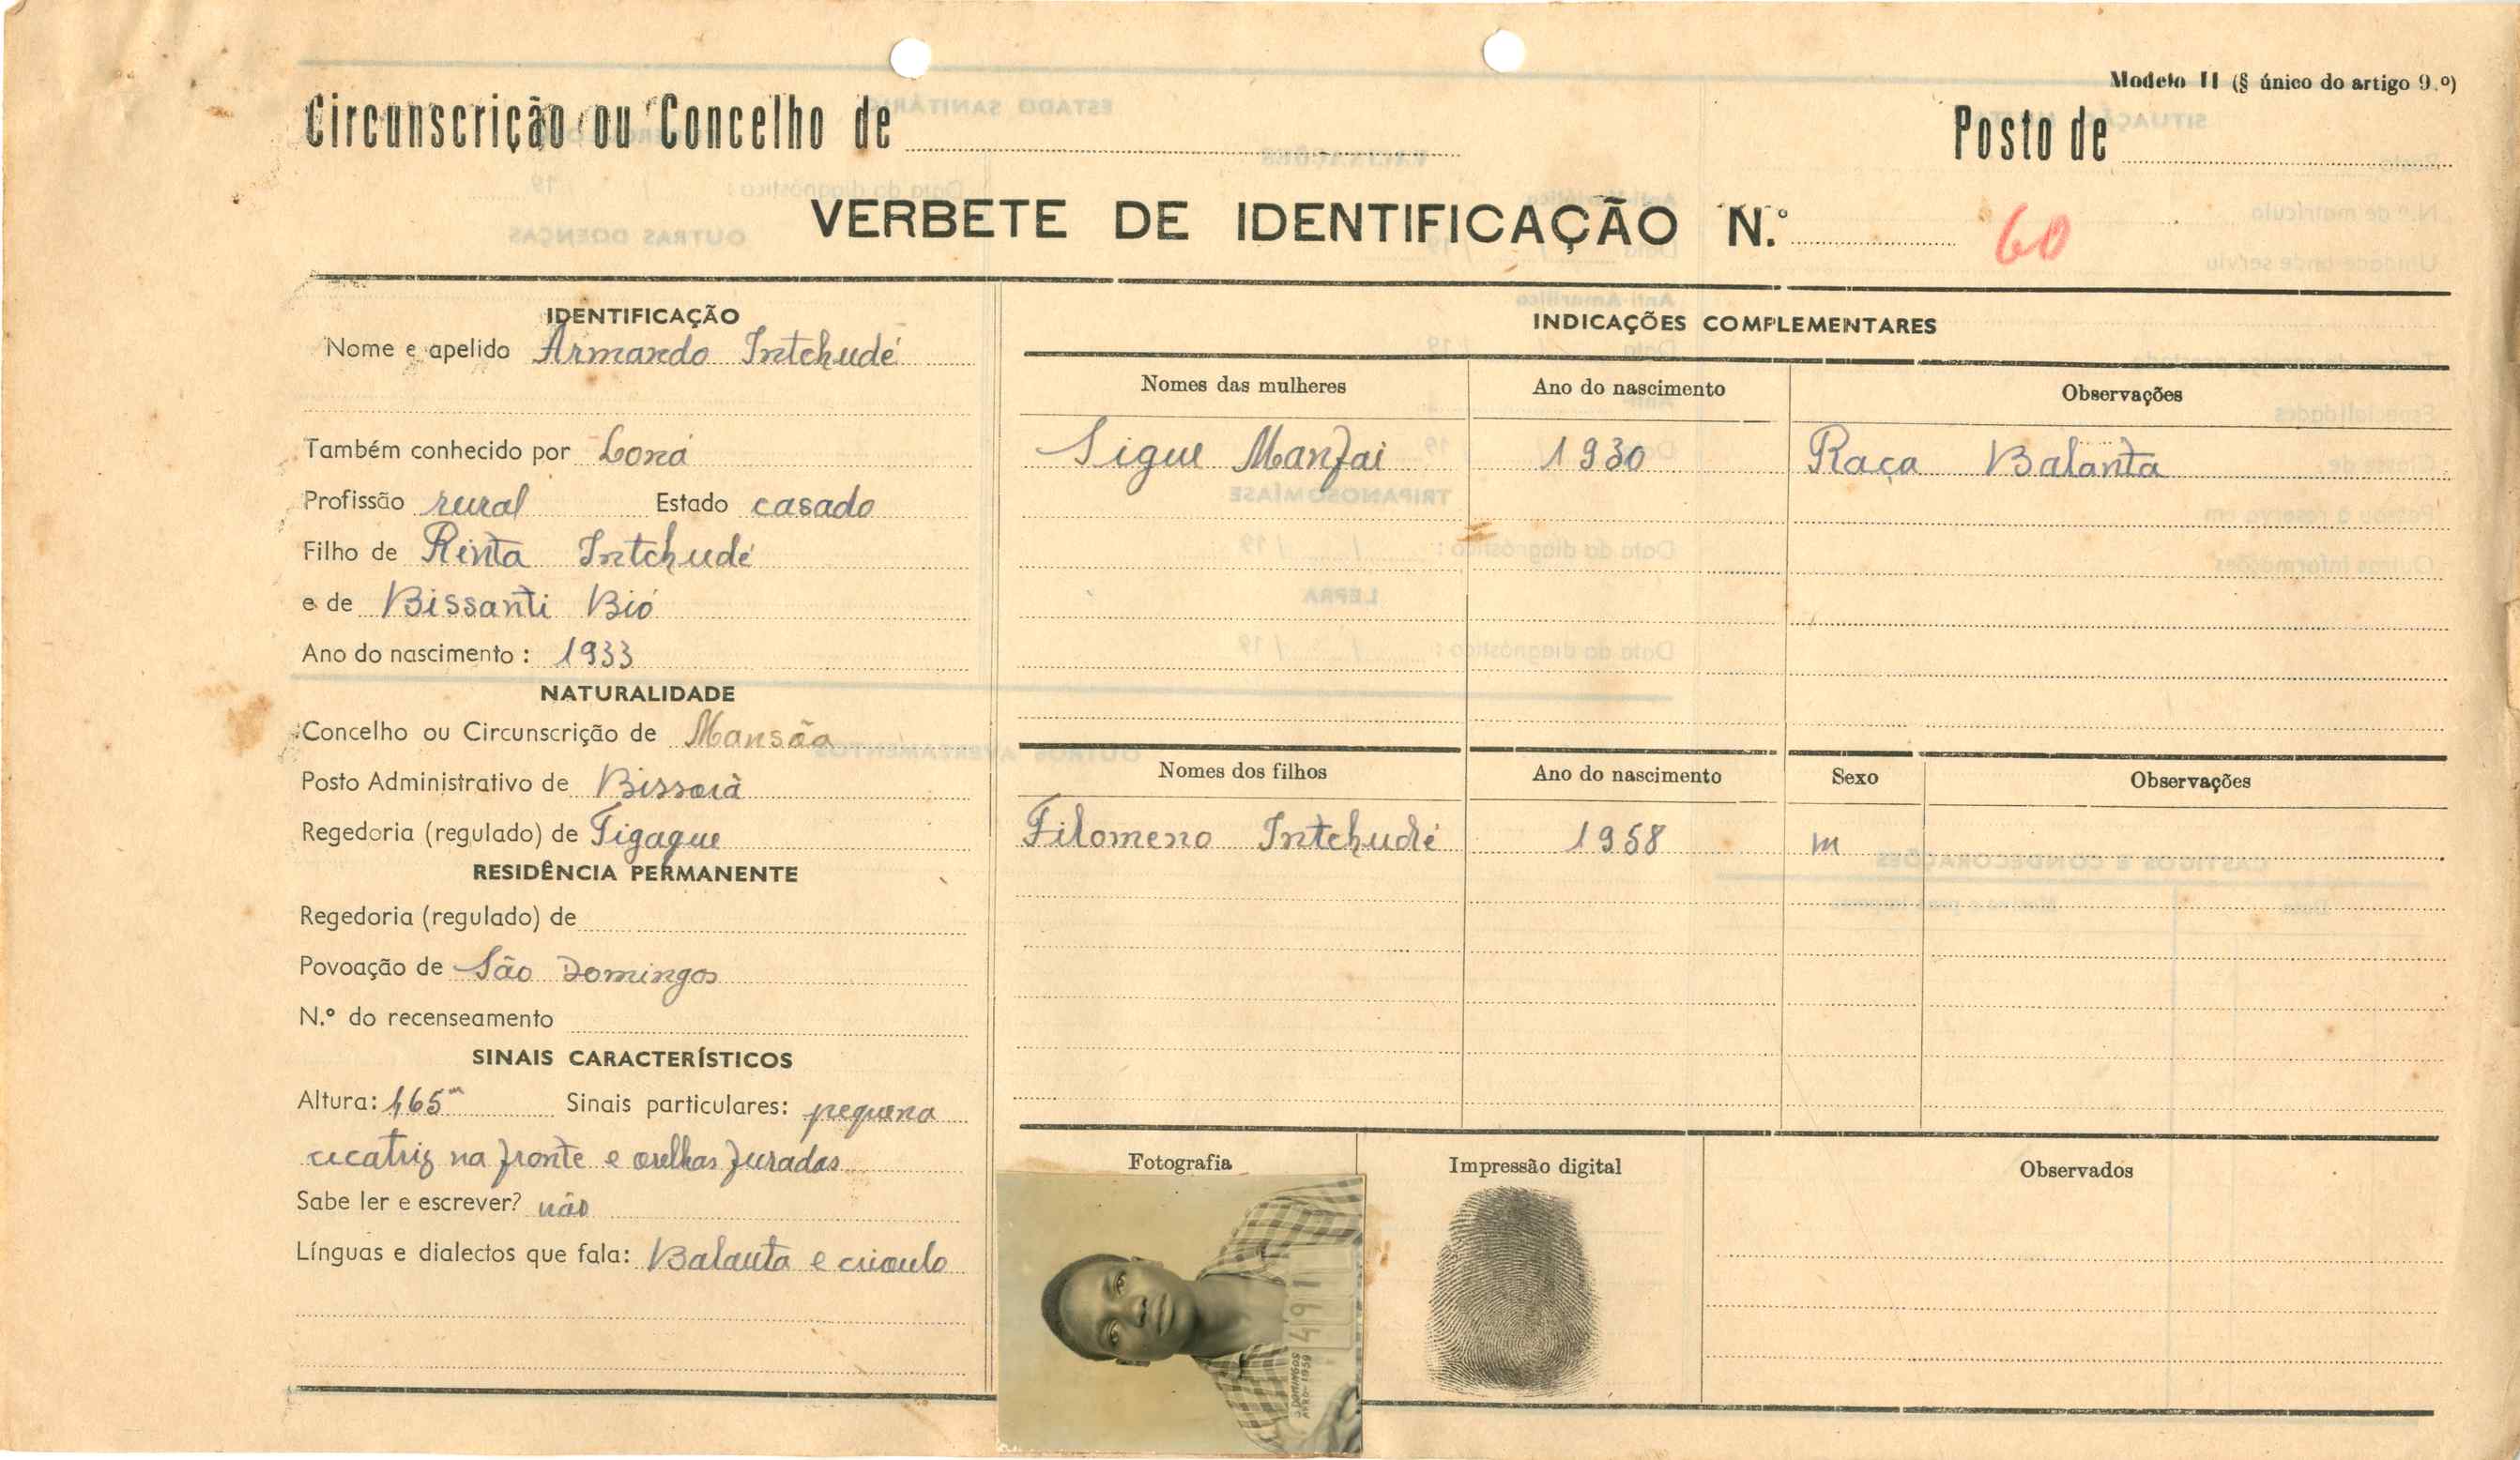 Modelo II (§ único do artigo 9.º)
Circunscrição ou Concelho de
Posto de
VERBETE DE IDENTIFICAÇÃO N.º 60
IDENTIFICAÇÃO
Nome e apelido Armando Intchudé
Também conhecido por Loná
Profissão rural Estado casado
Filho de Rinta Intchudé
e de Bissanti Bió
Ano do nascimento: 1933
NATURALIDADE
Concelho ou Circunscrição de Mansôa
Posto Administrativo de Bissorà
Regedoria (regulado) de Tigague
RESIDÊNCIA PERMANENTE
Regedoria (regulado) de
Povoação de São Domingos
N.º do recenseamento
SINAIS CARACTERÍSTICOS
Altura: 1,65m Sinais particulares: pequena
cicatriz na fronte e orelhas furadas
Sabe ler e escrever? não
Línguas e dialectos que fala: Balanta e crioulo
INDICAÇÕES COMPLEMENTARES
Nomes das mulheres Ano do nascimento Observações
Sigue Manfai 1930 Raça Balanta
Nomes dos filhos Ano do nascimento Sexo Observações
Filomeno Intchudé 1958 m
Fotografia Impressão digital Observados
4911
S. DOMINGOS
1959